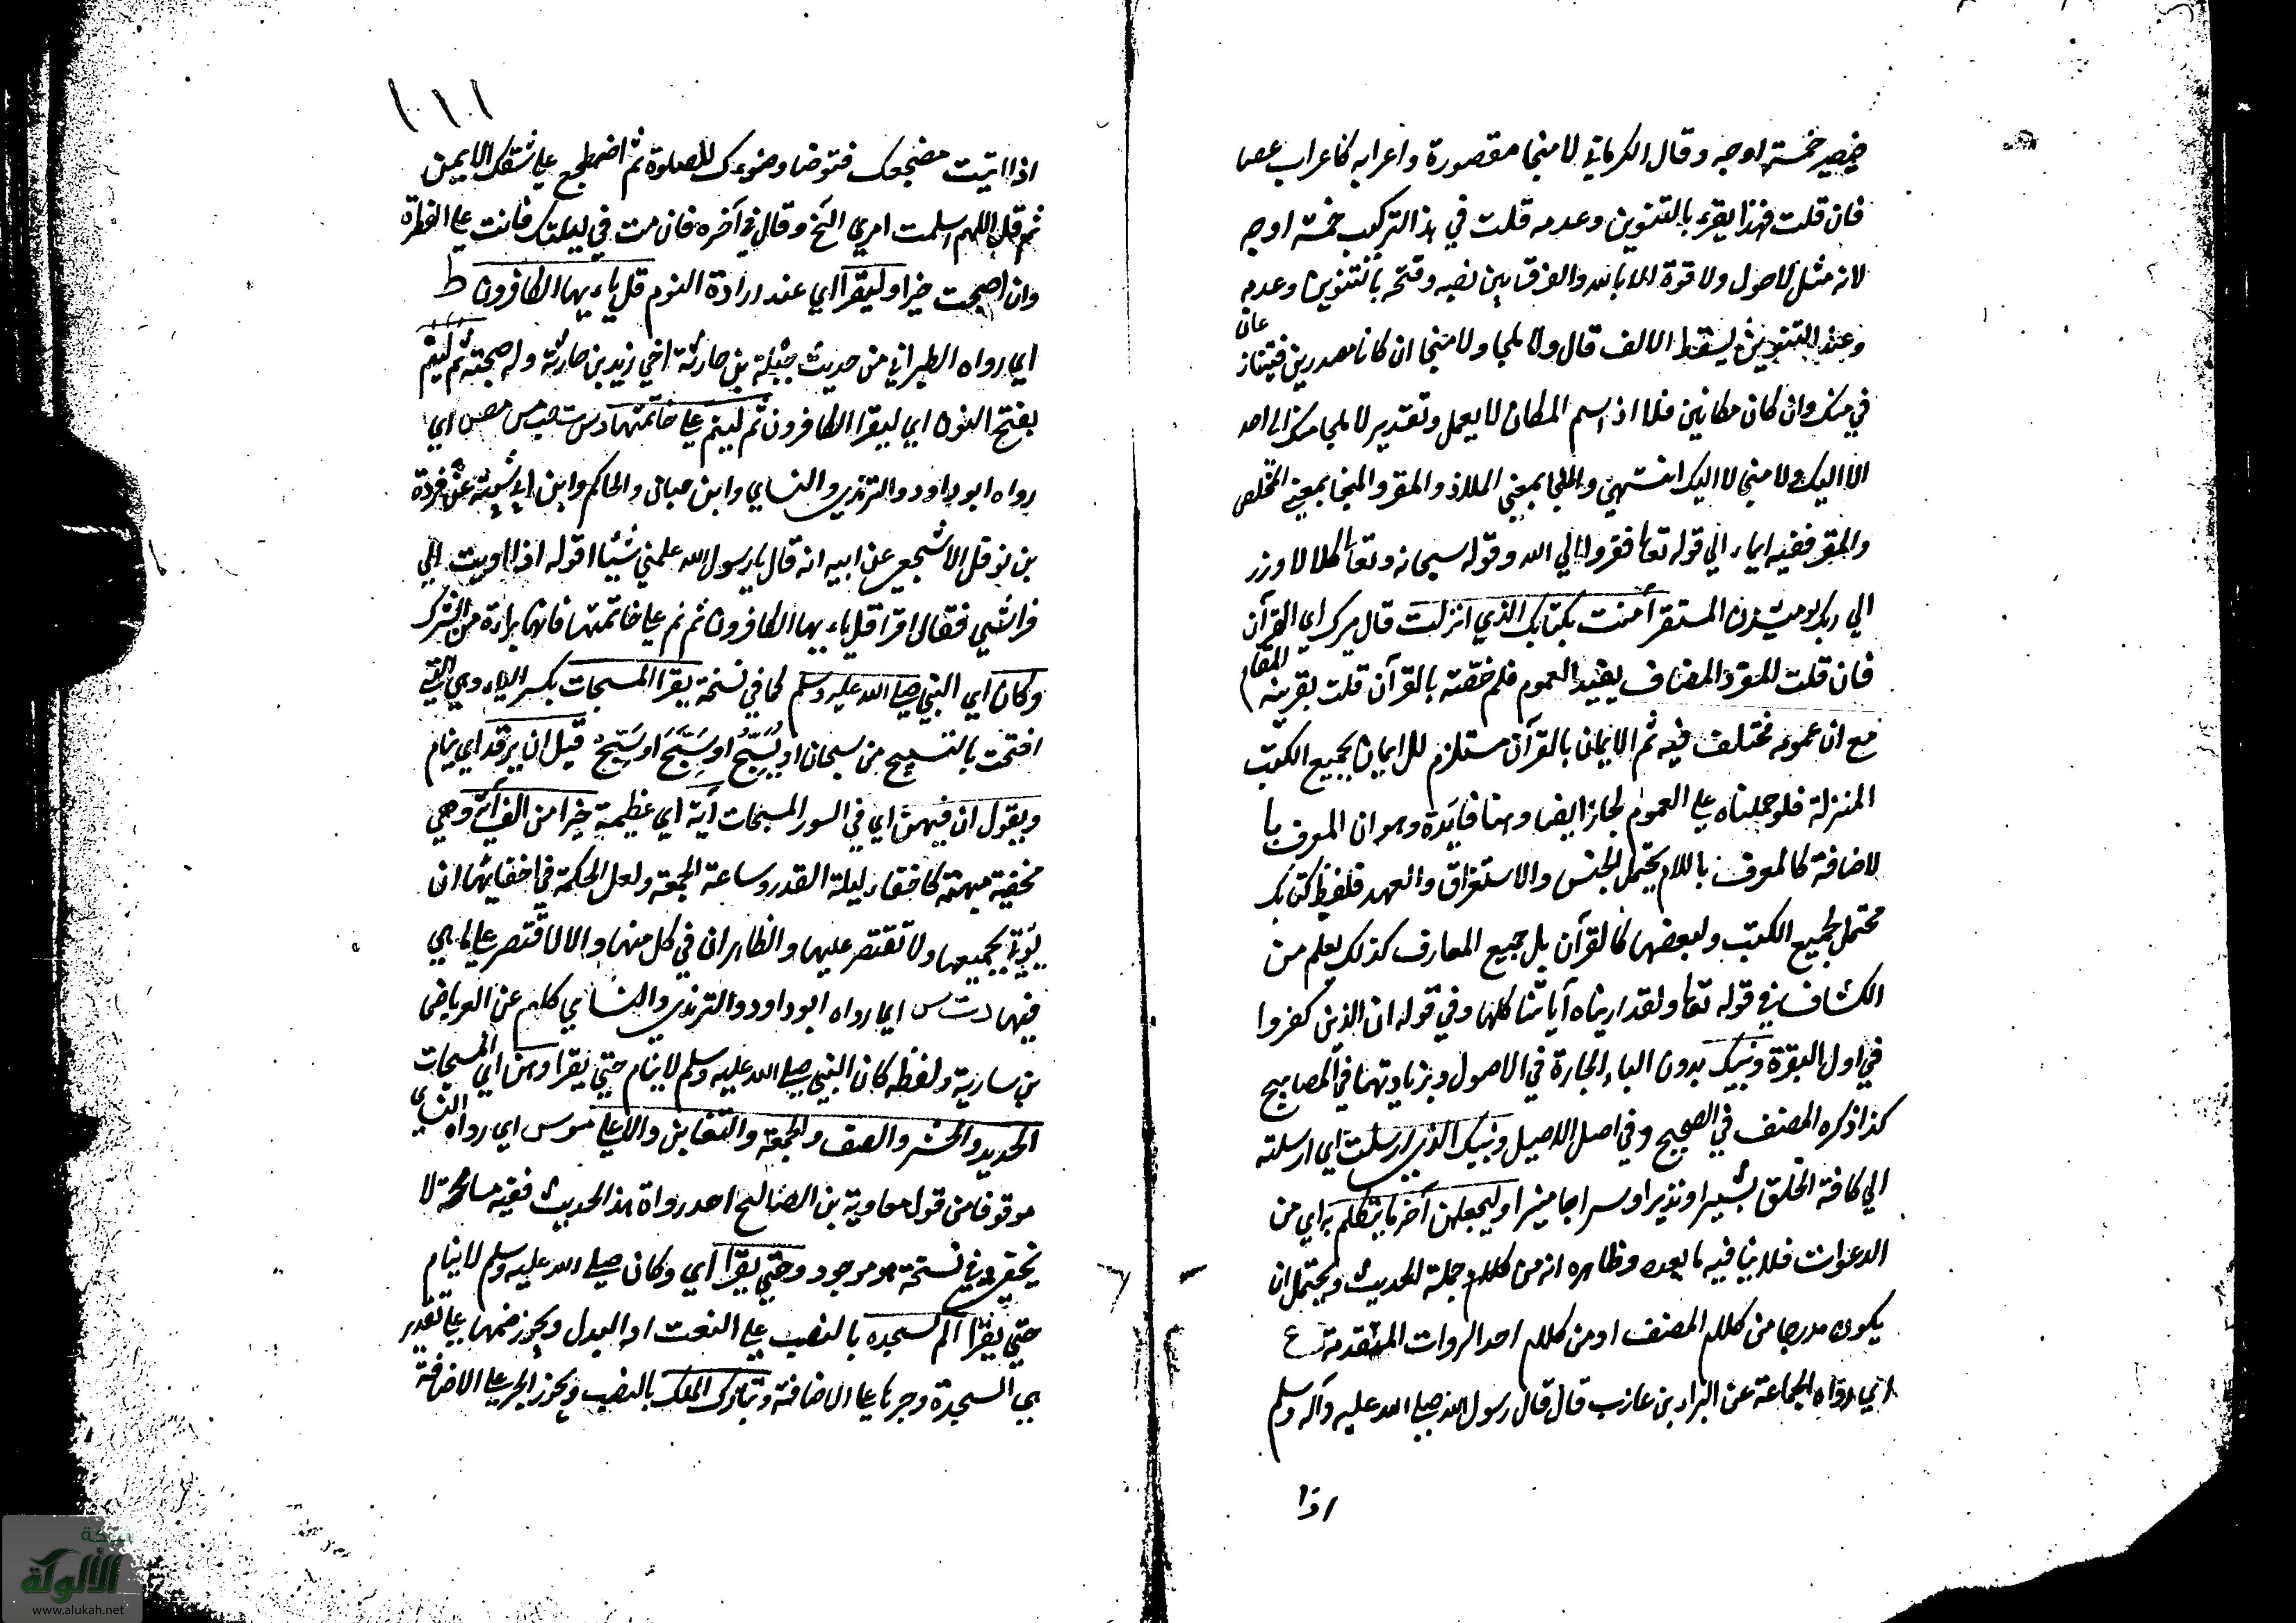 فيصير خمسة اوجه وقال الكرماني لا منجا مقصورة واعرابه كاعراب عصا
فان قلت فهذا يقرء بالتنوين وعدمه قلت في هذا التركيب خمسة اوجه
لانه مثل لا حول ولا قوة الا بالله والفرق بين نصبه وفتحه بالتنوين وعدمه
وعند التنوين يسقط الالف قال ولا ملجا ولا منجا ان كانا مصدرين فيتنازعان
في منك وان كان مكانين فلا اذ اسم المكان لا يعمل وتقدير لا ملجا منك الى احد
الا اليك ولا منجا لا اليك انتهى والملجا بمعنى الملاذ والمقر والمنجا بمعنى المخلص
والمقر ففيه ايماء الي قوله تعا ففروا الي الله وقوله سبحانه وتعا كلا لا وزر
الي ربك يومئذن المستقر آمنت بكتابك الذي انزلت قال ميرك اي القرآن
فان قلت المفرد المضاف يفيد العموم فلم خصّته بالقرآن قلت بقرينة المقام
مع ان عمومه مختلف فيه ثم الايمان بالقرآن مستلزم للايمان بجميع الكتب
المنزلة فلو حملناه علي العموم لجاز ايضا وهنا فايدة وهو ان المعرف با
لاضافة كالمعرف باللام يحتمل الجنس والاستغراق والعهد فلفظ كتابك
محتمل لجميع الكتب ولبعضها كالقرآن بل جميع المعارف كذلك يعلم من
الكشاف في قوله تعا ولقد اريناه آياتنا كلها وفي قوله ان الذين كفروا
في اول البقرة ونبيك بدون الباء الجارة في الاصول وبزيادتها في المصابيح
كذا ذكره المصنف في الصحيح وفي اصل الاصيل ونبيك الذي ارسلت اي ارسلته
الي كافة الخلق بشيرا ونذيرا وسراجا منيرا وليجعلهن آخر ما يتكلم به اي من
الدعوات فلا ينافيه ما بعده وظاهره انه من كلام جملة الحديث ويحتمل ان
يكون مدرجا من كلام المصنف او من كلام احد الروات المتقدمة ع
اي رواه الجماعة عن البراء بن عازب قال قال رسول الله صلي الله عليه وآله وسلم
اذا
١٠١
اذا اتيت مضجعك فتوضا وضوءك للصلوة ثم اضطجع علي شقك الايمن
ثم قل اللهم اسلمت امري الخ وقال في آخره فان مت في ليلتك فانت علي الفطرة
وان اصبحت خيرا وليقرا اي عند ارادة النوم قل ياءيها الكافرون ط
اي رواه الطبراني من حديث جبلة بن حارثة اخي زيد بن حارثة وله صحبة ثم لينم
بفتح النون اي ليقرا الكافرون ثم لينم علي خاتمتها د س ت حب مس مص اي
رواه ابو داود والترمذي والنساي وابن حبان والحاكم وابن ابي شيبة عن فروة
بن نوفل الاشجعي عن ابيه انه قال يا رسول الله علمني شيئا اقوله اذا اويت الي
فراشي فقال اقرا قل ياءيها الكافرون ثم نم علي خاتمتها فانها براءة من الشرك
وكان اي النبي صلي الله عليه وسلم كما في نسخة يقرا المسبحات بكسر الباء وهي التي
افتتحت بالتسبيح من سبحان او يُسَبِّحُ او سَبَّحَ او سَبِّحْ قبل ان يرقد اي ينام
ويقول ان فيهن اي في السور المسبحات آية اي عظيمة خير من الف آية وهي
مخفية مبهمة كاخفاء ليلة القدر وساعة الجمعة ولعل الحكمة في اخفائها ان
بجميعها ولا تقتصر عليها والظاهر ان في كل منها والا لاقتصر علي ما هي
فيها د ت س اي رواه ابو داود والترمذي والنساي كلهم عن العرباض
بن سارية ولفظه كان النبي صلي الله عليه وسلم لا ينام حتي يقرا وهن اي المسبحات
الحديد والحشر والصف والجمعة والتغابن والاعلي مو س اي رواه النساي
موقوفا من قول معاوية بن الصالح احد رواة هذا الحديث ففيه مسامحة لا
يخفى وفي نسخة هو موجود وحتي يقرا اي وكان صلي الله عليه وسلم لا ينام
حتي يقرا الم السجده بالنصب علي النعت او البدل ويجوز ضمها علي تقدير
هي السجدة وجرها علي الاضافة وتبارك الملك بالنصب ويجوز الجر علي الاضافة
شبكة
الألوكة
www.alukah.net